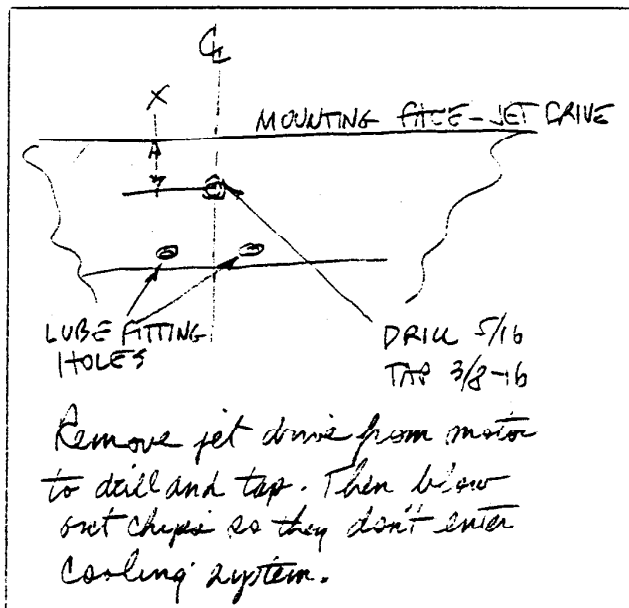 ℄
X
MOUNTING FACE-JET DRIVE
LUBE FITTING
HOLES
DRILL 5/16
TAP 3/8-16
Remove jet drive from motor
to drill and tap. Then blow
out chips so they don't enter
cooling system.